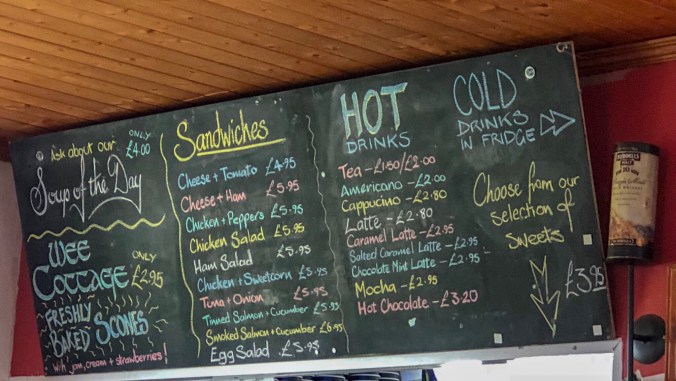 Ask about our ONLY £4.00
Soup of the Day
WEE
COTTAGE ONLY £2.95
FRESHLY
BAKED SCONES
with jam, cream + strawberries!
Sandwiches
Cheese + Tomato £4.95
Cheese + Ham £5.95
Chicken + Peppers £5.95
Chicken Salad £5.95
Ham Salad £5.95
Chicken + Sweetcorn £5.95
Tuna + Onion £5.95
Tinned Salmon + Cucumber £5.95
Smoked Salmon + Cucumber £6.95
Egg Salad £5.95
HOT
DRINKS
Tea - £1.50/£2.00
Americano - £2.00
Cappucino - £2.80
Latte - £2.80
Caramel Latte - £2.95
Salted Caramel Latte - £2.95
Chocolate Mint Latte - £2.95
Mocha - £2.95
Hot Chocolate - £3.20
COLD
DRINKS
IN FRIDGE
Choose from our
selection of
sweets
£3.95